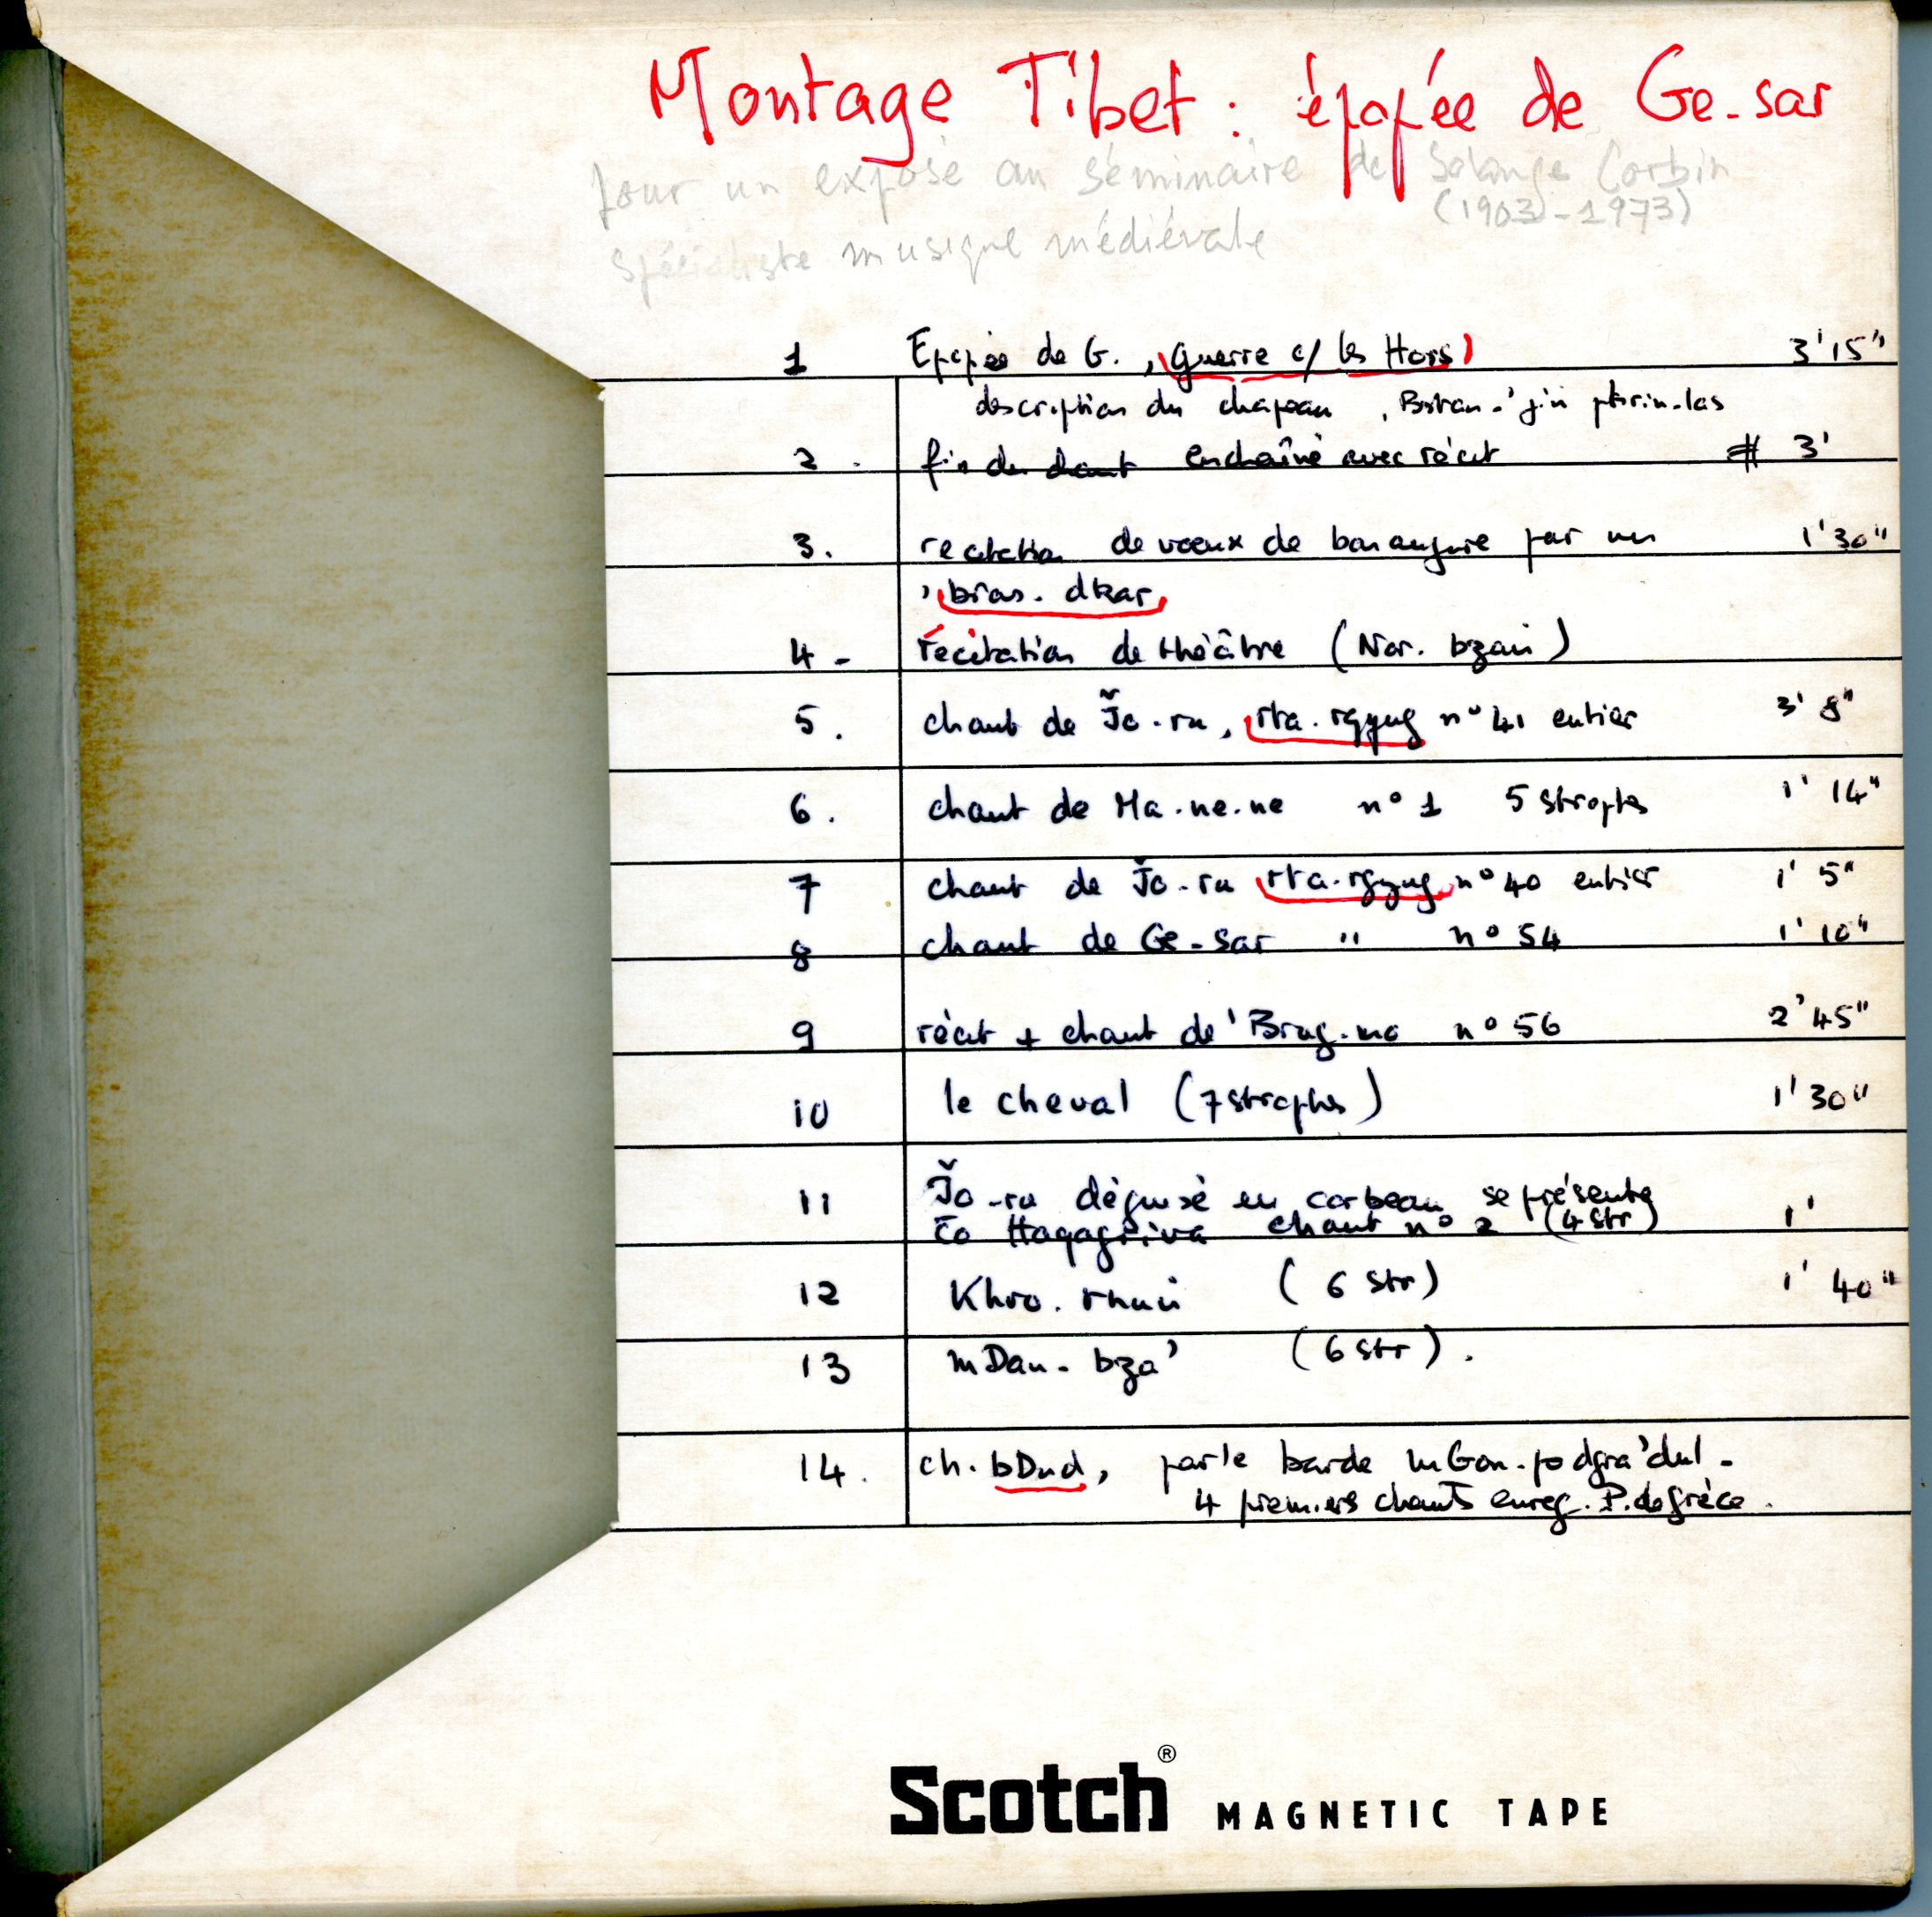 Montage Tibet : épopée de Ge-sar
pour un exposé au séminaire de Solange Corbin
(1903-1973)
spécialiste musique médiévale
1 Epopée de G., (guerre c/ les Hors) 3'15"
description du chapeau, Bstan-'jin phrin-las
2. fin du chant enchaîné avec récit # 3'
3. recitation de voeux de bon augure par un 1'30"
'bras. dkar
4- récitation de théâtre (Nor. bzaṅ)
5. chant de J̌o-ru, rta.rgyug n° 41 entier 3' 8"
6. chant de Ma.ne.ne n° 1 5 strophes 1' 14"
7 chant de J̌o-ru rta.rgyug n° 40 entier 1' 5"
8 chant de Ge-sar " n° 54 1' 10"
9 récit + chant de 'Brug.mo n° 56 2'45"
10 le cheval (7 strophes) 1'30"
11 J̌o-ru déguisé en corbeau se présente
co Hayagriva chant n° 2 (4 str) 1'
12 Khro. (6 str) 1' 40"
13 mDan-bza' (6 str).
14. ch. bDud, par le barde mGon-po dgra'dul-
4 premiers chants enreg. P. de Grèce.
Scotch® MAGNETIC TAPE